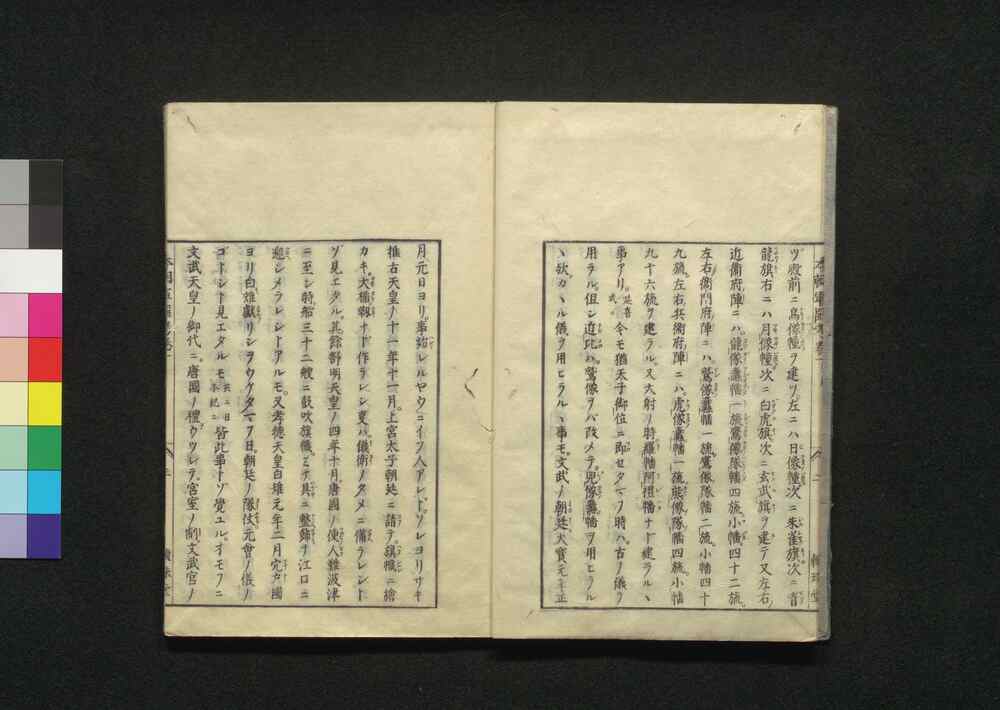 ツ殿前ニ烏像幢ヲ建ツ左ニハ日像幢次ニ朱雀旗次ニ青
龍旗右ニハ月像幢次ニ白虎旗次ニ玄武旗ヲ建テ又左右
近衛府陣ニハ龍像纛幡一旒鷹像隊幡四旒小幡四十二旒
左右衛門府陣ニハ鷲像纛幡一旒鷹像隊幡二旒小幡四十
九旒左右兵衛府陣ニハ虎像纛幡一旒熊像隊幡四旒小幡
九十六旒ヲ建ラル又大射ノ時羅幡阿禮幡ナド建ラルヽ
事アリ延喜式今モ猶天子御位ニ即セタマフ時ハ古ノ儀ヲ
用ラル但シ近比ハ鷲像ヲバ改メテ兕像纛幡ヲ用ヒラル
ヽ歟カヽル儀ヲ用ヒラルヽ事モ文武ノ朝廷大寶元年正
月元日ヨリ事始レルヤウニイフ人アレドソレヨリサキ
推古天皇ノ十一年十一月上宮太子朝廷ニ請テ旗幟ニ繪
カキ大楯靫ナド作ラレシ是儀衛ノタメニ備ラレシト
ゾ見エタル其餘舒明天皇ノ四年十月唐國ノ使人難波津
ニ至シ時船三十二艘ニ鼓吹旗幟ミナ具ニ整飾テ江口ニ
迎シメラレシトアルモ又孝徳天皇白雉元年二月穴戸國
ヨリ白雉獻リシヲウケタマフ日朝廷ノ隊仗元會ノ儀ノ
ゴトシト見エタルモ共ニ日本紀ニ皆此事トゾ覺ユルオモフニ
文武天皇ノ御代ニ唐國ノ禮ウツシテ宮室ノ制文武官ノ